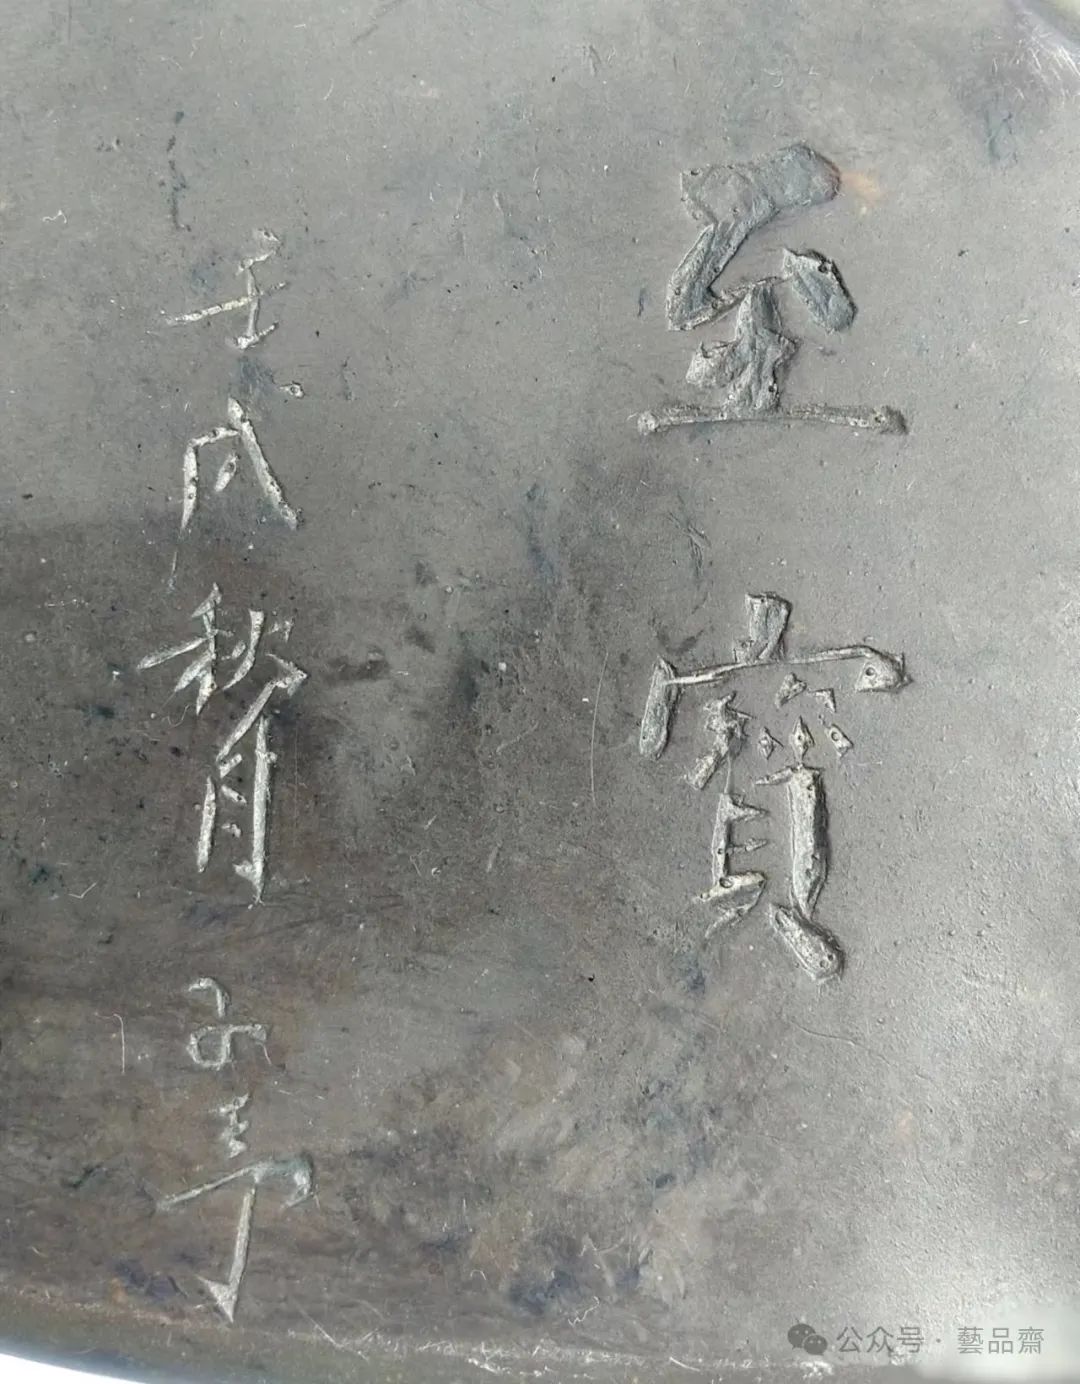 至寶
壬戌秋月
公众号 · 藝品齋